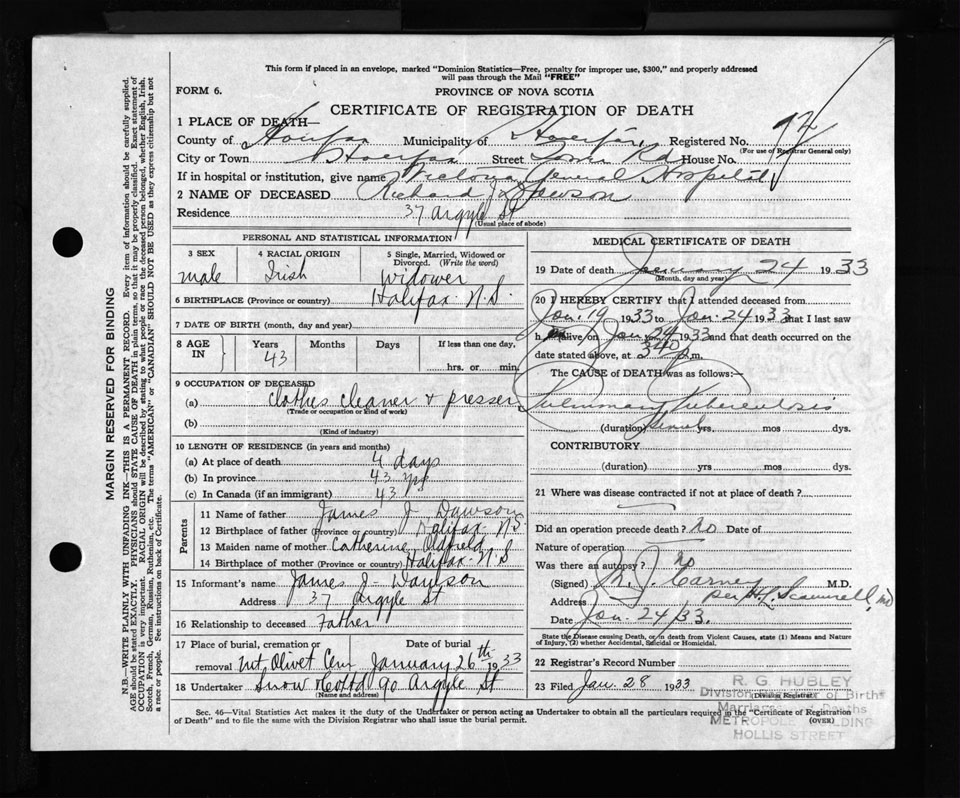 This form if placed in an envelope, marked "Dominion Statistics—Free, penalty for improper use, $300," and properly addressed
will pass through the Mail "FREE"
FORM 6.
PROVINCE OF NOVA SCOTIA
CERTIFICATE OF REGISTRATION OF DEATH
1 PLACE OF DEATH—
County of Halifax Municipality of Halifax Registered No.
(For use of Registrar General only)
City or Town Halifax Street Tower Rd House No.
If in hospital or institution, give name Victoria General Hospital
2 NAME OF DECEASED Richard J Dawson
Residence 37 Argyle St
(Usual place of abode)
PERSONAL AND STATISTICAL INFORMATION
3 SEX
male
4 RACIAL ORIGIN
Irish
5 Single, Married, Widowed or
Divorced. (Write the word)
Widower
6 BIRTHPLACE (Province or country) Halifax N.S.
7 DATE OF BIRTH (month, day and year)
8 AGE IN
Years Months Days If less than one day,
43 hrs. or min.
9 OCCUPATION OF DECEASED
(a) Clothes cleaner & presser
(Trade or occupation or kind of work)
(b)
(Kind of industry)
10 LENGTH OF RESIDENCE (in years and months)
(a) At place of death 4 days
(b) In province 43 yrs
(c) In Canada (if an immigrant) 43
Parents
11 Name of father James J. Dawson
12 Birthplace of father (Province or country) Halifax N S
13 Maiden name of mother Catherine Oldfield
14 Birthplace of mother (Province or Country) Halifax N.S
15 Informant's name James J. Dawson
Address 37 Argyle St
16 Relationship to deceased Father
17 Place of burial, cremation or Date of burial
removal Mt Olivet Cem January 26th 1933
18 Undertaker Snow & Co Ltd 90 Argyle St
(Name and address)
MEDICAL CERTIFICATE OF DEATH
19 Date of death January 24 1933
(Month, day and year)
20 I HEREBY CERTIFY that I attended deceased from
Jan. 19 1933 to Jan. 24 1933 that I last saw
h alive on Jan 24 1933 and that death occurred on the
date stated above, at 3 40 p.m.
The CAUSE OF DEATH was as follows:—
Pulmonary Tuberculosis
(duration) yrs. mos dys.
CONTRIBUTORY
(duration) yrs. mos dys.
21 Where was disease contracted if not at place of death?
Did an operation precede death? no Date of
Nature of operation
Was there an autopsy? no
(Signed) Carney M.D.
Address per H. Scammell MD
Date Jan. 24/33.
State the Disease causing Death, or in death from Violent Causes, state (1) Means and Nature
of Injury, (2) whether Accidental, Suicidal or Homicidal.
22 Registrar's Record Number
23 Filed Jan 28 1933
Division Registrar
R. G. HUBLEY
Division Registrar of Births
Marriages and Deaths
METROPOLE BUILDING
HOLLIS STREET
(OVER)
Sec. 46—Vital Statistics Act makes it the duty of the Undertaker or person acting as Undertaker to obtain all the particulars required in the "Certificate of Registration
of Death" and to file the same with the Division Registrar who shall issue the burial permit.
MARGIN RESERVED FOR BINDING
N.B.—WRITE PLAINLY WITH UNFADING INK—THIS IS A PERMANENT RECORD. Every item of information should be carefully supplied.
AGE should be stated EXACTLY. PHYSICIANS should STATE CAUSE OF DEATH in plain terms, so that it may be properly classified. Exact statement of
OCCUPATION is very important. RACIAL ORIGIN will be described by stating to what people or race the deceased person belonged, whether English, Irish,
Scotch, French, German, Russian, Ruthenian, etc. The terms "AMERICAN" or "CANADIAN" SHOULD NOT BE USED as they express citizenship but not
a race or people. See instructions on back of Certificate.